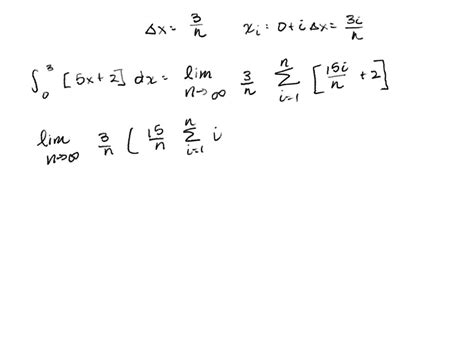 Δx = 3/n    xᵢ = 0 + i Δx = 3i/n
∫₀³ [5x+2] dx = lim_{n→∞} 3/n Σ_{i=1}^{n} [15i/n + 2]
lim_{n→∞} 3/n ( 15/n Σ_{i=1}^{n} i